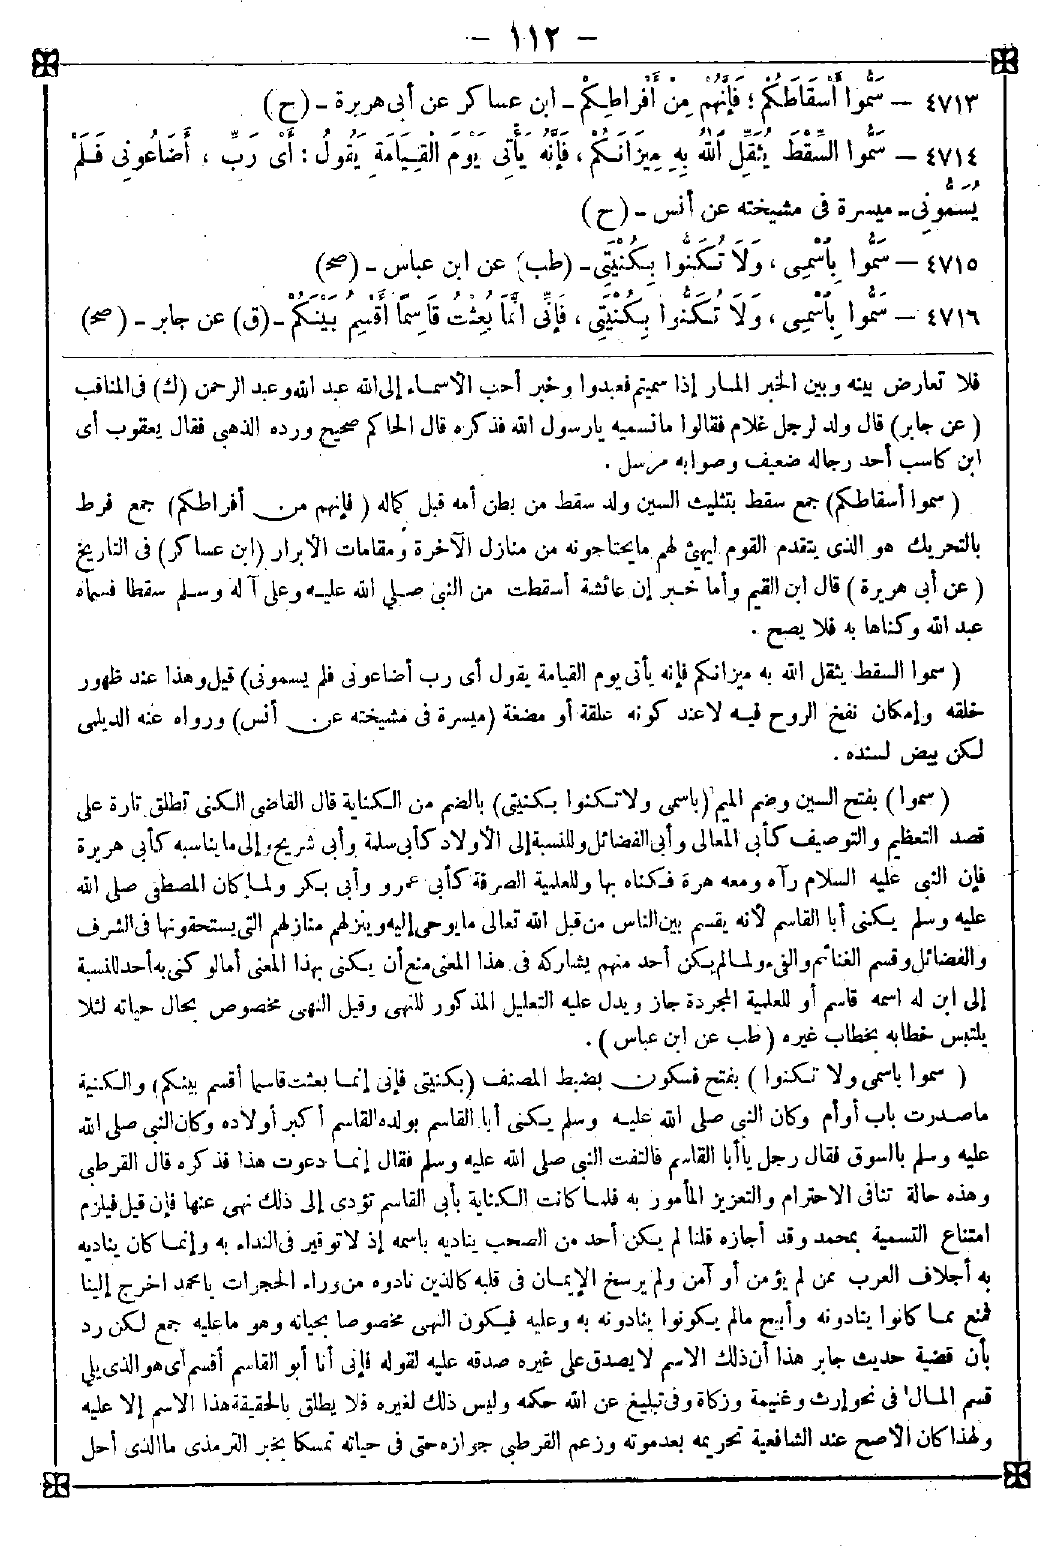 – ١١٢ –
٤٧١٣ – سَمُّوا أَسْقَاطَكُمْ ؛ فَإِنَّهُمْ مِنْ أَفْرَاطِكُمْ – ابن عساكر عن أبى هريرة – (ح)
٤٧١٤ – سَمُّوا السِّقْطَ يُثَقِّلِ اللهُ بِهِ مِيزَانَكُمْ ، فَإِنَّهُ يَأْتِى يَوْمَ الْقِيَامَةِ يَقُولُ : أَىْ رَبِّ ، أَضَاعُونِى فَلَمْ
يُسَمُّونِى – ميسرة فى مشيخته عن أنس – (ح)
٤٧١٥ – سَمُّوا بِاسْمِى ، وَلَا تُكَنُّوا بِكُنْيَتِى – (طب) عن ابن عباس – (صح)
٤٧١٦ – سَمُّوا بِاسْمِى ، وَلَا تُكَنُّوا بِكُنْيَتِى ، فَإِنِّى إِنَّمَا بُعِثْتُ قَاسِمًا أَقْسِمُ بَيْنَكُمْ – (ق) عن جابر – (صح)
فلا تعارض بينه وبين الخبر المار إذا سميتم فعبدوا وخبر أحب الأسماء إلى الله عبد الله وعبد الرحمن (ك) فى المناقب
(عن جابر) قال ولد لرجل غلام فقالوا ما نسميه يارسول الله فذكره قال الحاكم صحيح ورده الذهبى فقال يعقوب أى
ابن كاسب أحد رجاله ضعيف وصوابه مرسل .
(سموا أسقاطكم) جمع سقط بتثليث السين ولد سقط من بطن أمه قبل كماله (فإنهم من أفراطكم) جمع فرط
بالتحريك هو الذى يتقدم القوم ليهيئ لهم مايحتاجونه من منازل الآخرة ومقامات الأبرار (ابن عساكر) فى التاريخ
(عن أبى هريرة) قال ابن القيم وأما خبر إن عائشة أسقطت من النبى صلى الله عليه وعلى آله وسلم سقطا فسماه
عبد الله وكناها به فلا يصح .
(سموا السقط يثقل الله به ميزانكم فإنه يأتى يوم القيامة يقول أى رب أضاعونى فلم يسمونى) قيل وهذا عند ظهور
خلقه وإمكان نفخ الروح فيه لاعند كونه علقة أو مضغة (ميسرة فى مشيخته عن أنس) ورواه عنه الديلمى
لكن بيض لسنده .
(سموا) بفتح السين وضم الميم (باسمى ولا تكنوا بكنيتى) بالضم من الكناية قال القاضى الكنى تطلق تارة على
قصد التعظيم والتوصيف كأبى المعالى وأبى الفضائل وللنسبة إلى الأولاد كأبى سلمة وأبى شريح وإلى ما يناسبه كأبى هريرة
فإن النبى عليه السلام رآه ومعه هرة فكناه بها وللعلمية الصرفة كأبى عمرو وأبى بكر ولما كان المصطفى صلى الله
عليه وسلم يكنى أبا القاسم لأنه يقسم بين الناس من قبل الله تعالى ما يوحى إليه وينزلهم منازلهم التى يستحقونها فى الشرف
والفضائل وقسم الغنائم والفىء ولما لم يكن أحد منهم يشاركه فى هذا المعنى منع أن يكنى بهذا المعنى أما لو كنى به أحد للنسبة
إلى ابن له اسمه قاسم أو للعلمية المجردة جاز ويدل عليه التعليل المذكور للنهى وقيل النهى مخصوص بحال حياته لئلا
يلتبس خطابه بخطاب غيره (طب عن ابن عباس) .
(سموا باسمى ولا تكنوا) بفتح فسكون بضبط المصنف (بكنيتى فإنى إنما بعثت قاسما أقسم بينكم) والكنية
ماصدرت باب أو أم وكان النبى صلى الله عليه وسلم يكنى أبا القاسم بولده القاسم أكبر أولاده وكان النبى صلى الله
عليه وسلم بالسوق فقال رجل يا أبا القاسم فالتفت النبى صلى الله عليه وسلم فقال إنما دعوت هذا فذكره قال القرطبى
وهذه حالة تنافى الاحترام والتعزيز المأمور به فلما كانت الكناية بأبى القاسم تؤدى إلى ذلك نهى عنها فإن قيل فيلزم
امتناع التسمية بمحمد وقد أجازه قلنا لم يكن أحد من الصحب يناديه باسمه إذ لا توقير فى النداء به وإنما كان يناديه
به أجلاف العرب ممن لم يؤمن أو آمن ولم يرسخ الإيمان فى قلبه كالذين نادوه من وراء الحجرات يا محمد اخرج إلينا
فمنع مما كانوا ينادونه وأبيح مالم يكونوا ينادونه به وعليه فيكون النهى مخصوصا بحياته وهو ما عليه جمع لكن رد
بأن قضية حديث جابر هذا أن ذلك الاسم لا يصدق على غيره صدقه عليه لقوله فإنى أنا أبو القاسم أقسم أى هو الذى يلى
قسم المال فى نحو إرث وغنيمة وزكاة وفى تبليغ عن الله حكمه وليس ذلك لغيره فلا يطلق بالحقيقة هذا الاسم إلا عليه
ولهذا كان الأصح عند الشافعية تحريمه بعد موته وزعم القرطبى جوازه حتى فى حياته تمسكا بخبر الترمذى ما الذى أحل